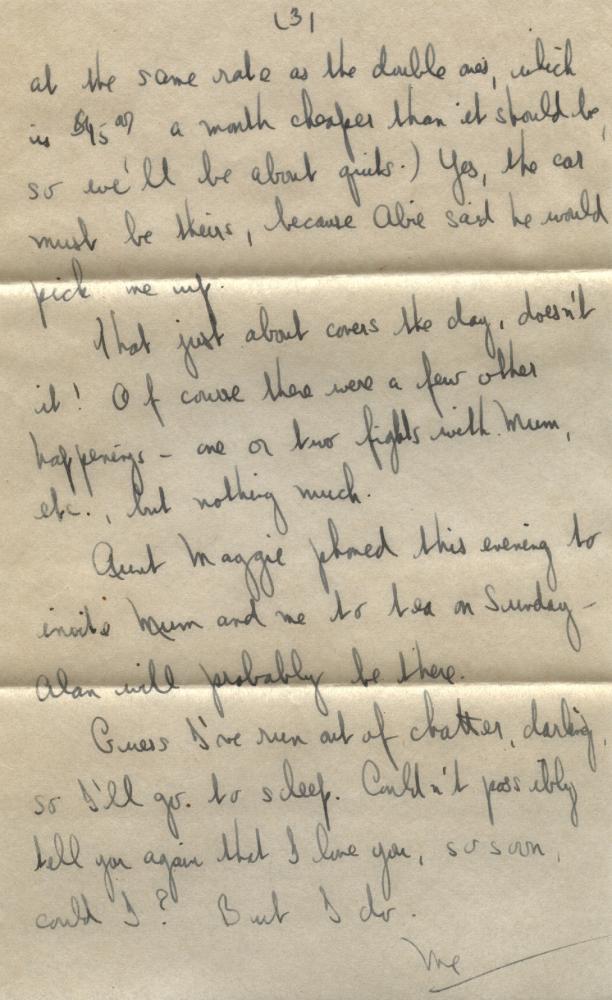 (3)
at the same rate as the double ones, which
is a month cheaper than it should be,
so we'll be about quits.) Yes, the car
must be theirs, because Abie said he would
pick me up.
That just about covers the day, doesn't
it! Of course there were a few other
happenings - one or two fights with Mum,
etc., but nothing much.
Aunt Maggie phoned this evening to
invite Mum and me to tea on Sunday -
Alan will probably be there.
Guess I've run out of chatter, darling,
so I'll go to sleep. Couldn't possibly
tell you again that I love you, so soon,
could I? But I do.
Me